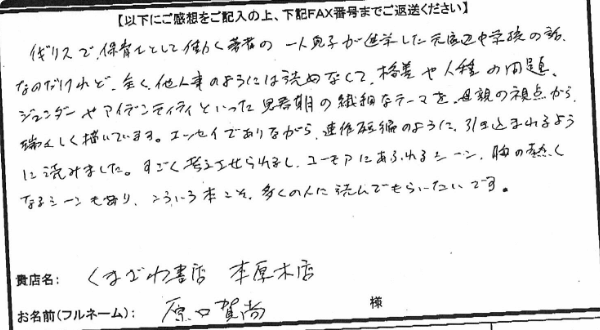 【以下にご感想をご記入の上、下記FAX番号までご返送ください】
イギリスで、保育士として働く著者の一人息子が進学した元底辺中学校の話
なのだけれど、全く他人事のようには読めなくて、格差や人種の問題、
ジェンダーやアイデンティティといった思春期の繊細なテーマを、母親の視点から
瑞々しく描いています。エッセイでありながら、連作短編のように、引き込まれるよう
に読みました。すごく考えさせられるし、ユーモアにあふれるシーン、胸の熱く
なるシーンもあり、こういう本こそ、多くの人に読んでもらいたいです。
貴店名: くまざわ書店 本厚木店
お名前(フルネーム): 原口賀尚 様